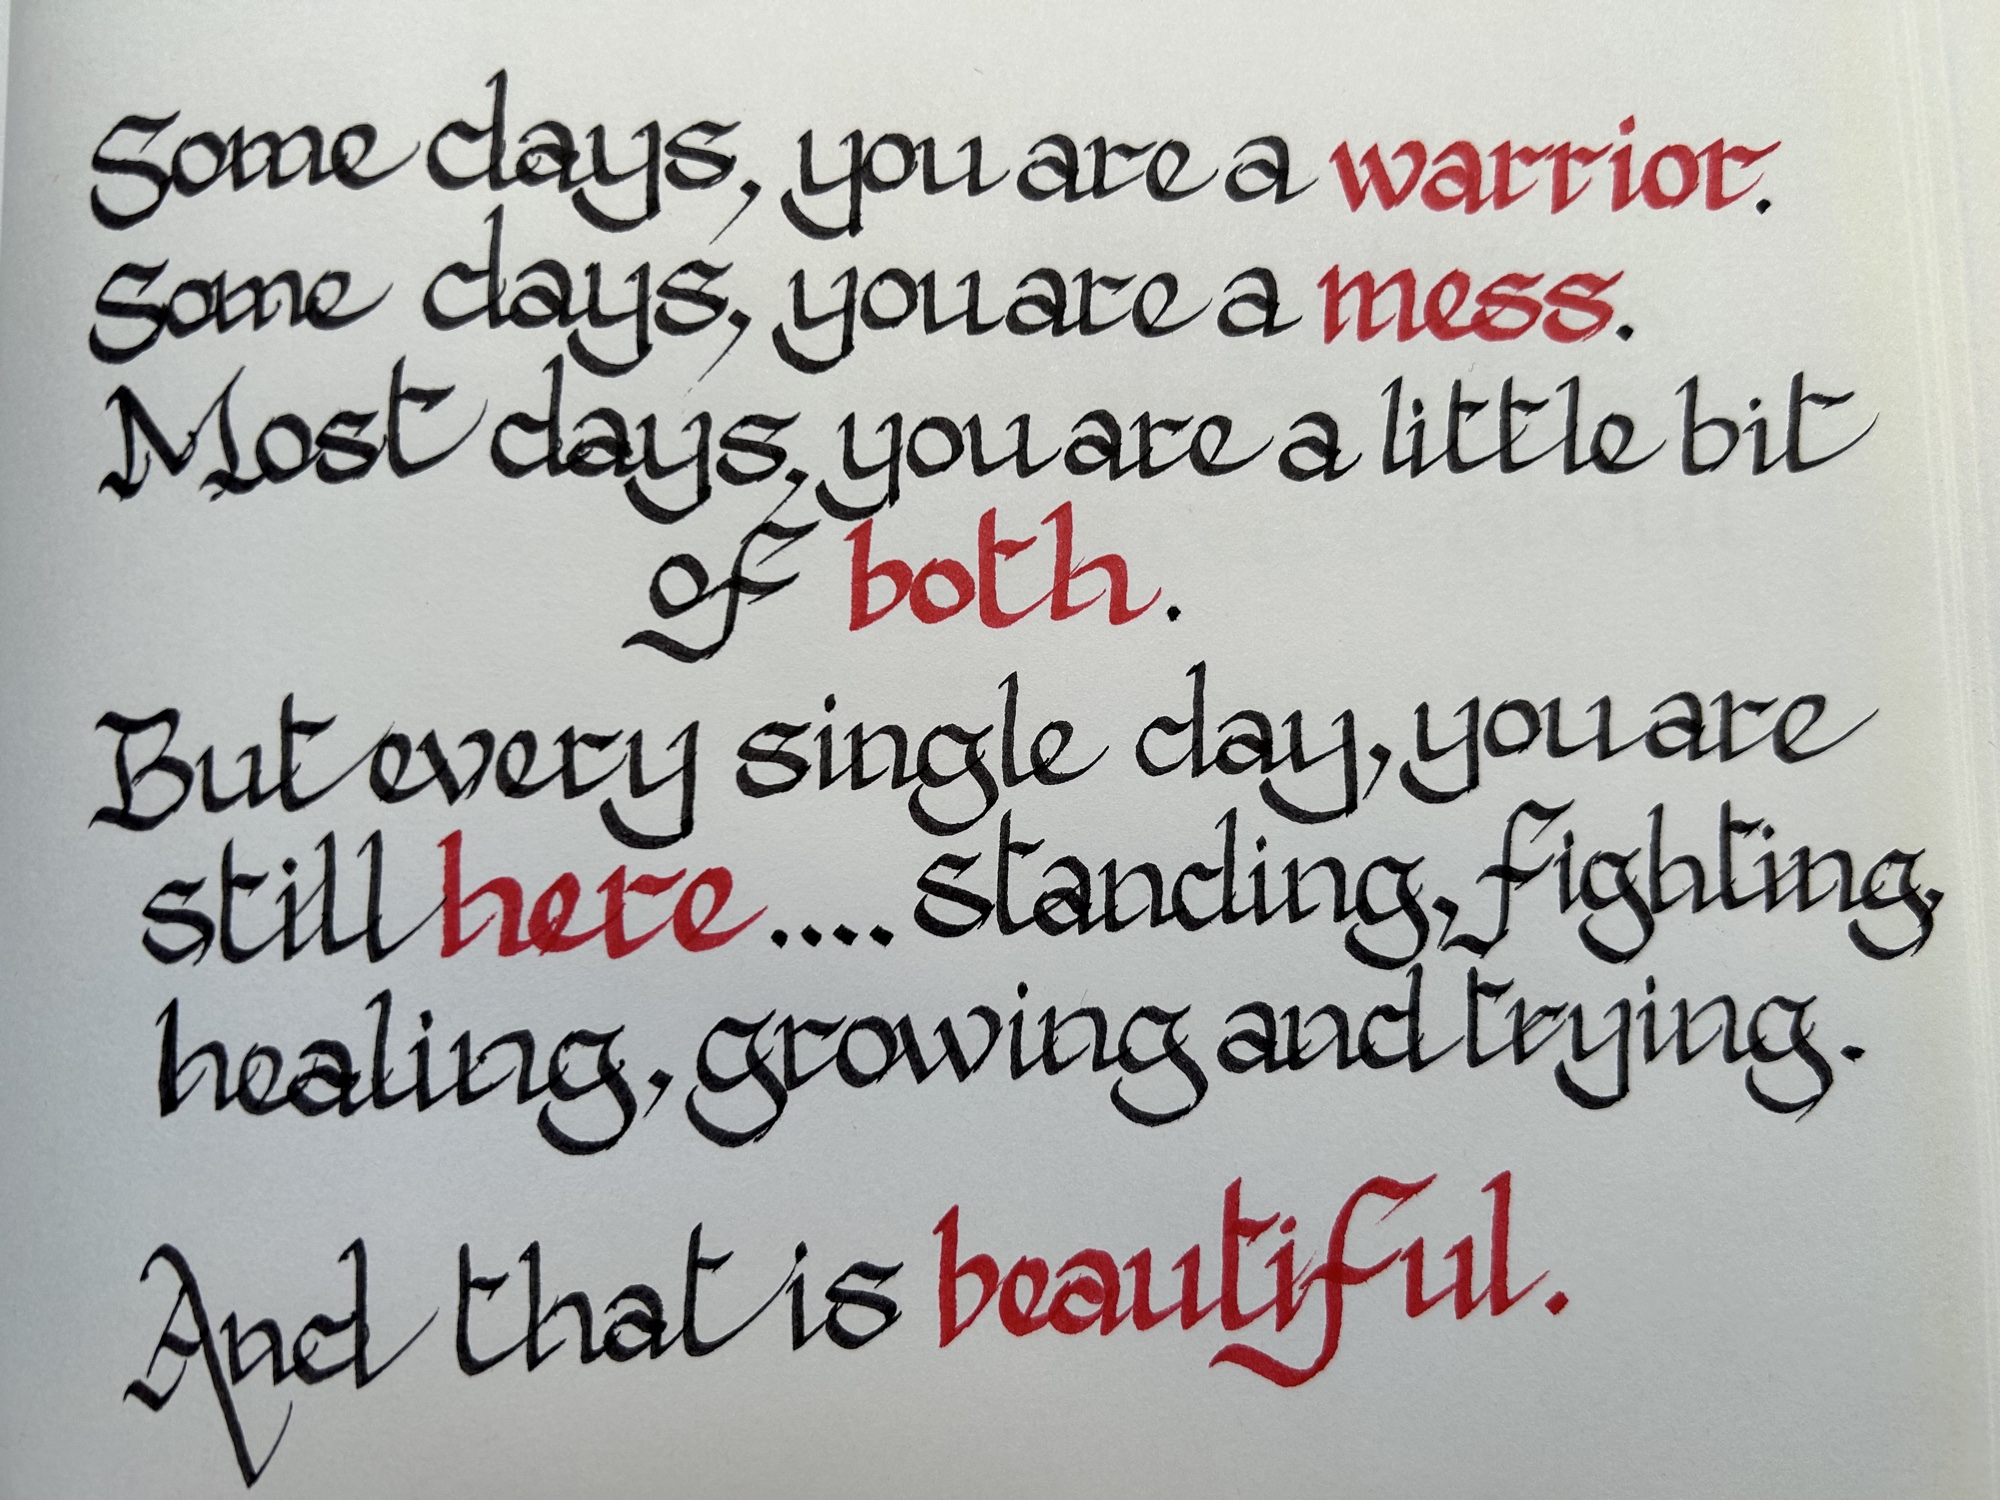 Some days, you are a warrior.
Some days, you are a mess.
Most days, you are a little bit
of both.
But every single day, you are
still here.... standing, fighting,
healing, growing and trying.
And that is beautiful.